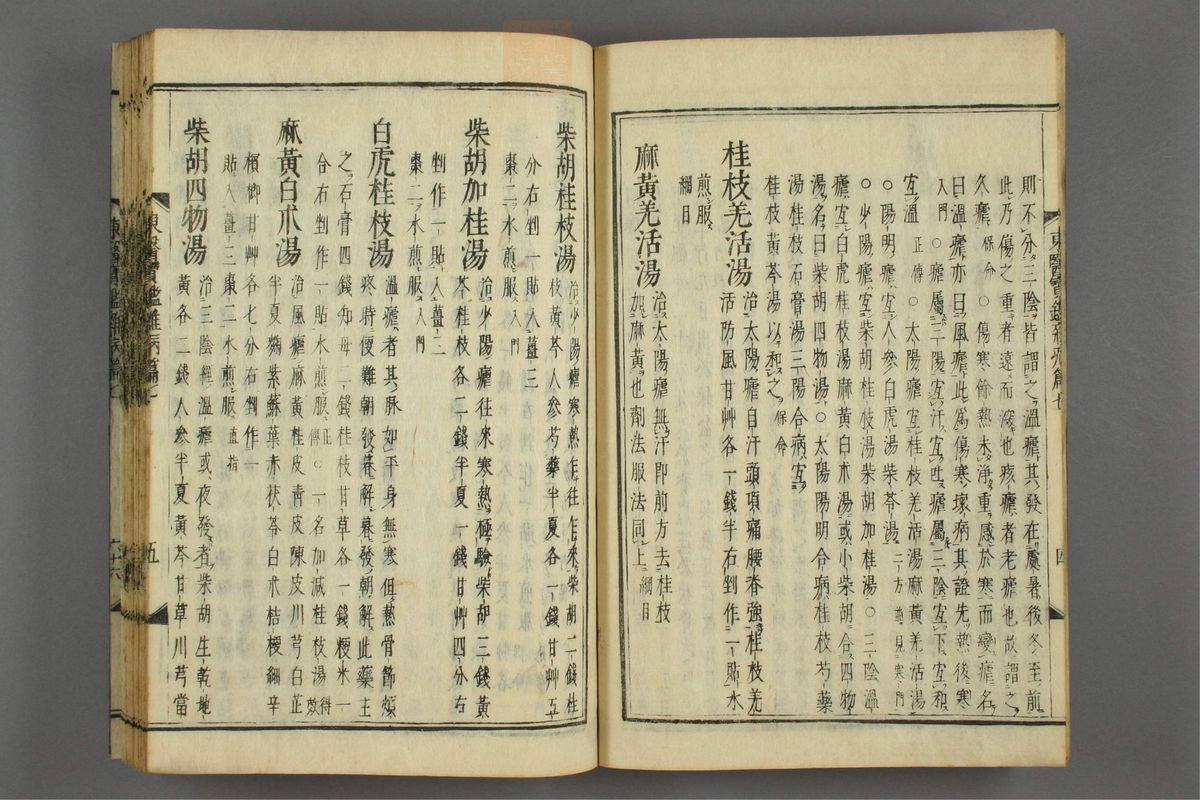 則不分三陰皆謂之溫瘧其發在處暑後冬至前
此乃傷之重者遠而深也痎瘧者老瘧也故謂之
久瘧保命○傷寒餘熱未淨重感於寒而變瘧名
曰溫瘧亦曰風瘧此爲傷寒壞病其證先熱後寒
入門○瘧屬三陽宜汗宜吐瘧屬三陰宜下宜和
宜溫正傳○太陽瘧宜桂枝羌活湯麻黃羌活湯
○陽明瘧宜人參白虎湯柴苓湯二方並見寒門
○少陽瘧宜柴胡桂枝湯柴胡加桂湯○三陰溫
瘧宜白虎桂枝湯麻黃白朮湯或小柴胡合四物
湯名曰柴胡四物湯○太陽陽明合病桂枝芍藥
湯桂枝石膏湯三陽合病宜
桂枝黃芩湯以和之保命
桂枝羌活湯
治太陽瘧自汗頭項痛腰脊強桂枝羌
活防風甘艸各一錢半右剉作一貼水
煎服
綱目
麻黃羌活湯
治太陽瘧無汗即前方去桂枝
加麻黃也劑法服法同上綱目
東醫寶鑑雜病篇七
四
柴胡桂枝湯
治少陽瘧寒熱乍往乍來柴胡二錢桂
枝黃芩人參芍藥半夏各一錢甘艸五
分右剉一貼入薑三
棗二水煎服入門
柴胡加桂湯
治少陽瘧往來寒熱極驗柴胡三錢黃
芩桂枝各二錢半夏一錢甘艸四分右
剉作一貼入薑三
棗二水煎服入門
白虎桂枝湯
溫瘧者其脉如平身無寒但熱骨節煩
疼時便難朝發暮解暮發朝解此藥主
之石膏四錢知母二錢桂枝甘草各一錢粳米一
合右剉作一貼水煎服正傳○一名加減桂枝湯得效
麻黃白朮湯
治風瘧麻黃桂皮青皮陳皮川芎白芷
半夏麴紫蘇葉赤茯苓白朮桔梗細辛
檳榔甘艸各七分右剉作一
貼入薑三棗二水煎服直指
柴胡四物湯
治三陰經溫瘧或夜發者柴胡生乾地
黃各二錢人參半夏黃芩甘草川芎當
東醫寶鑑雜病篇七
五